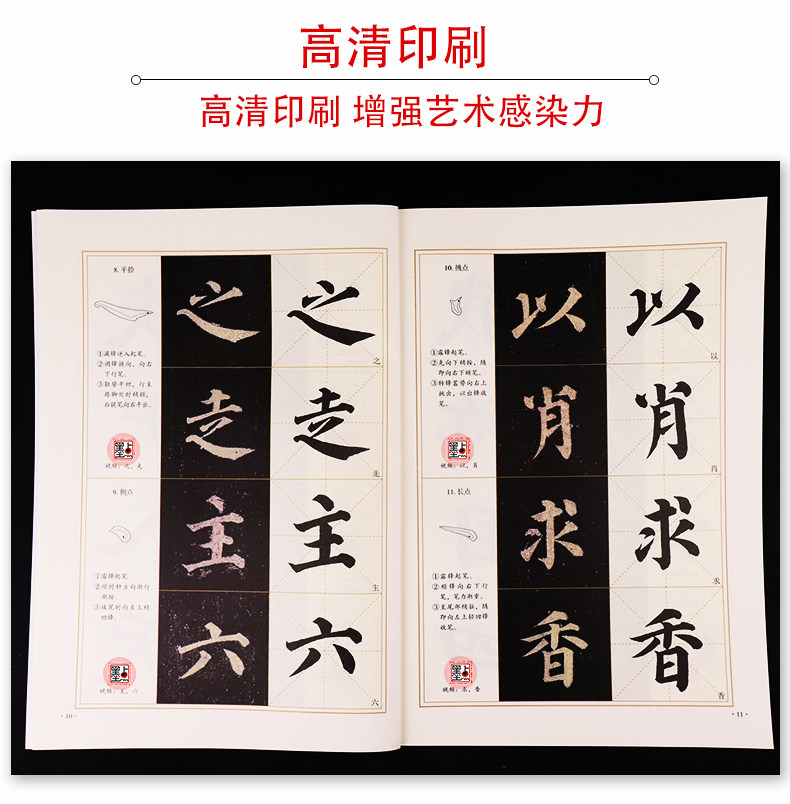 高清印刷
高清印刷 增强艺术感染力
8. 平捺
①藏锋逆入起笔。
②调锋换向,向右
下行笔。
③取势平缓,行至
捺脚处时稍顿,
后提笔向右平出。
墨点
视频:之、走
之 之
之
走 走
走
9. 侧点
①露锋起笔。
②顺时针方向渐行
渐按。
③收笔时向左上稍
回锋。
墨点
视频:主、六
主 主
主
六 六
六
·10·
10. 挑点
①露锋起笔。
②先向下稍按,随
即向右下顿笔。
③转锋蓄势向右上
挑出,以出锋收
笔。
墨点
视频:以、肖
以 以
以
肖 肖
肖
11. 长点
①露锋起笔。
②顺锋向右下行
笔,笔力渐重。
③至尾部稍驻,随
即向左上轻回锋
收笔。
墨点
视频:求、香
求 求
求
香 香
香
·11·